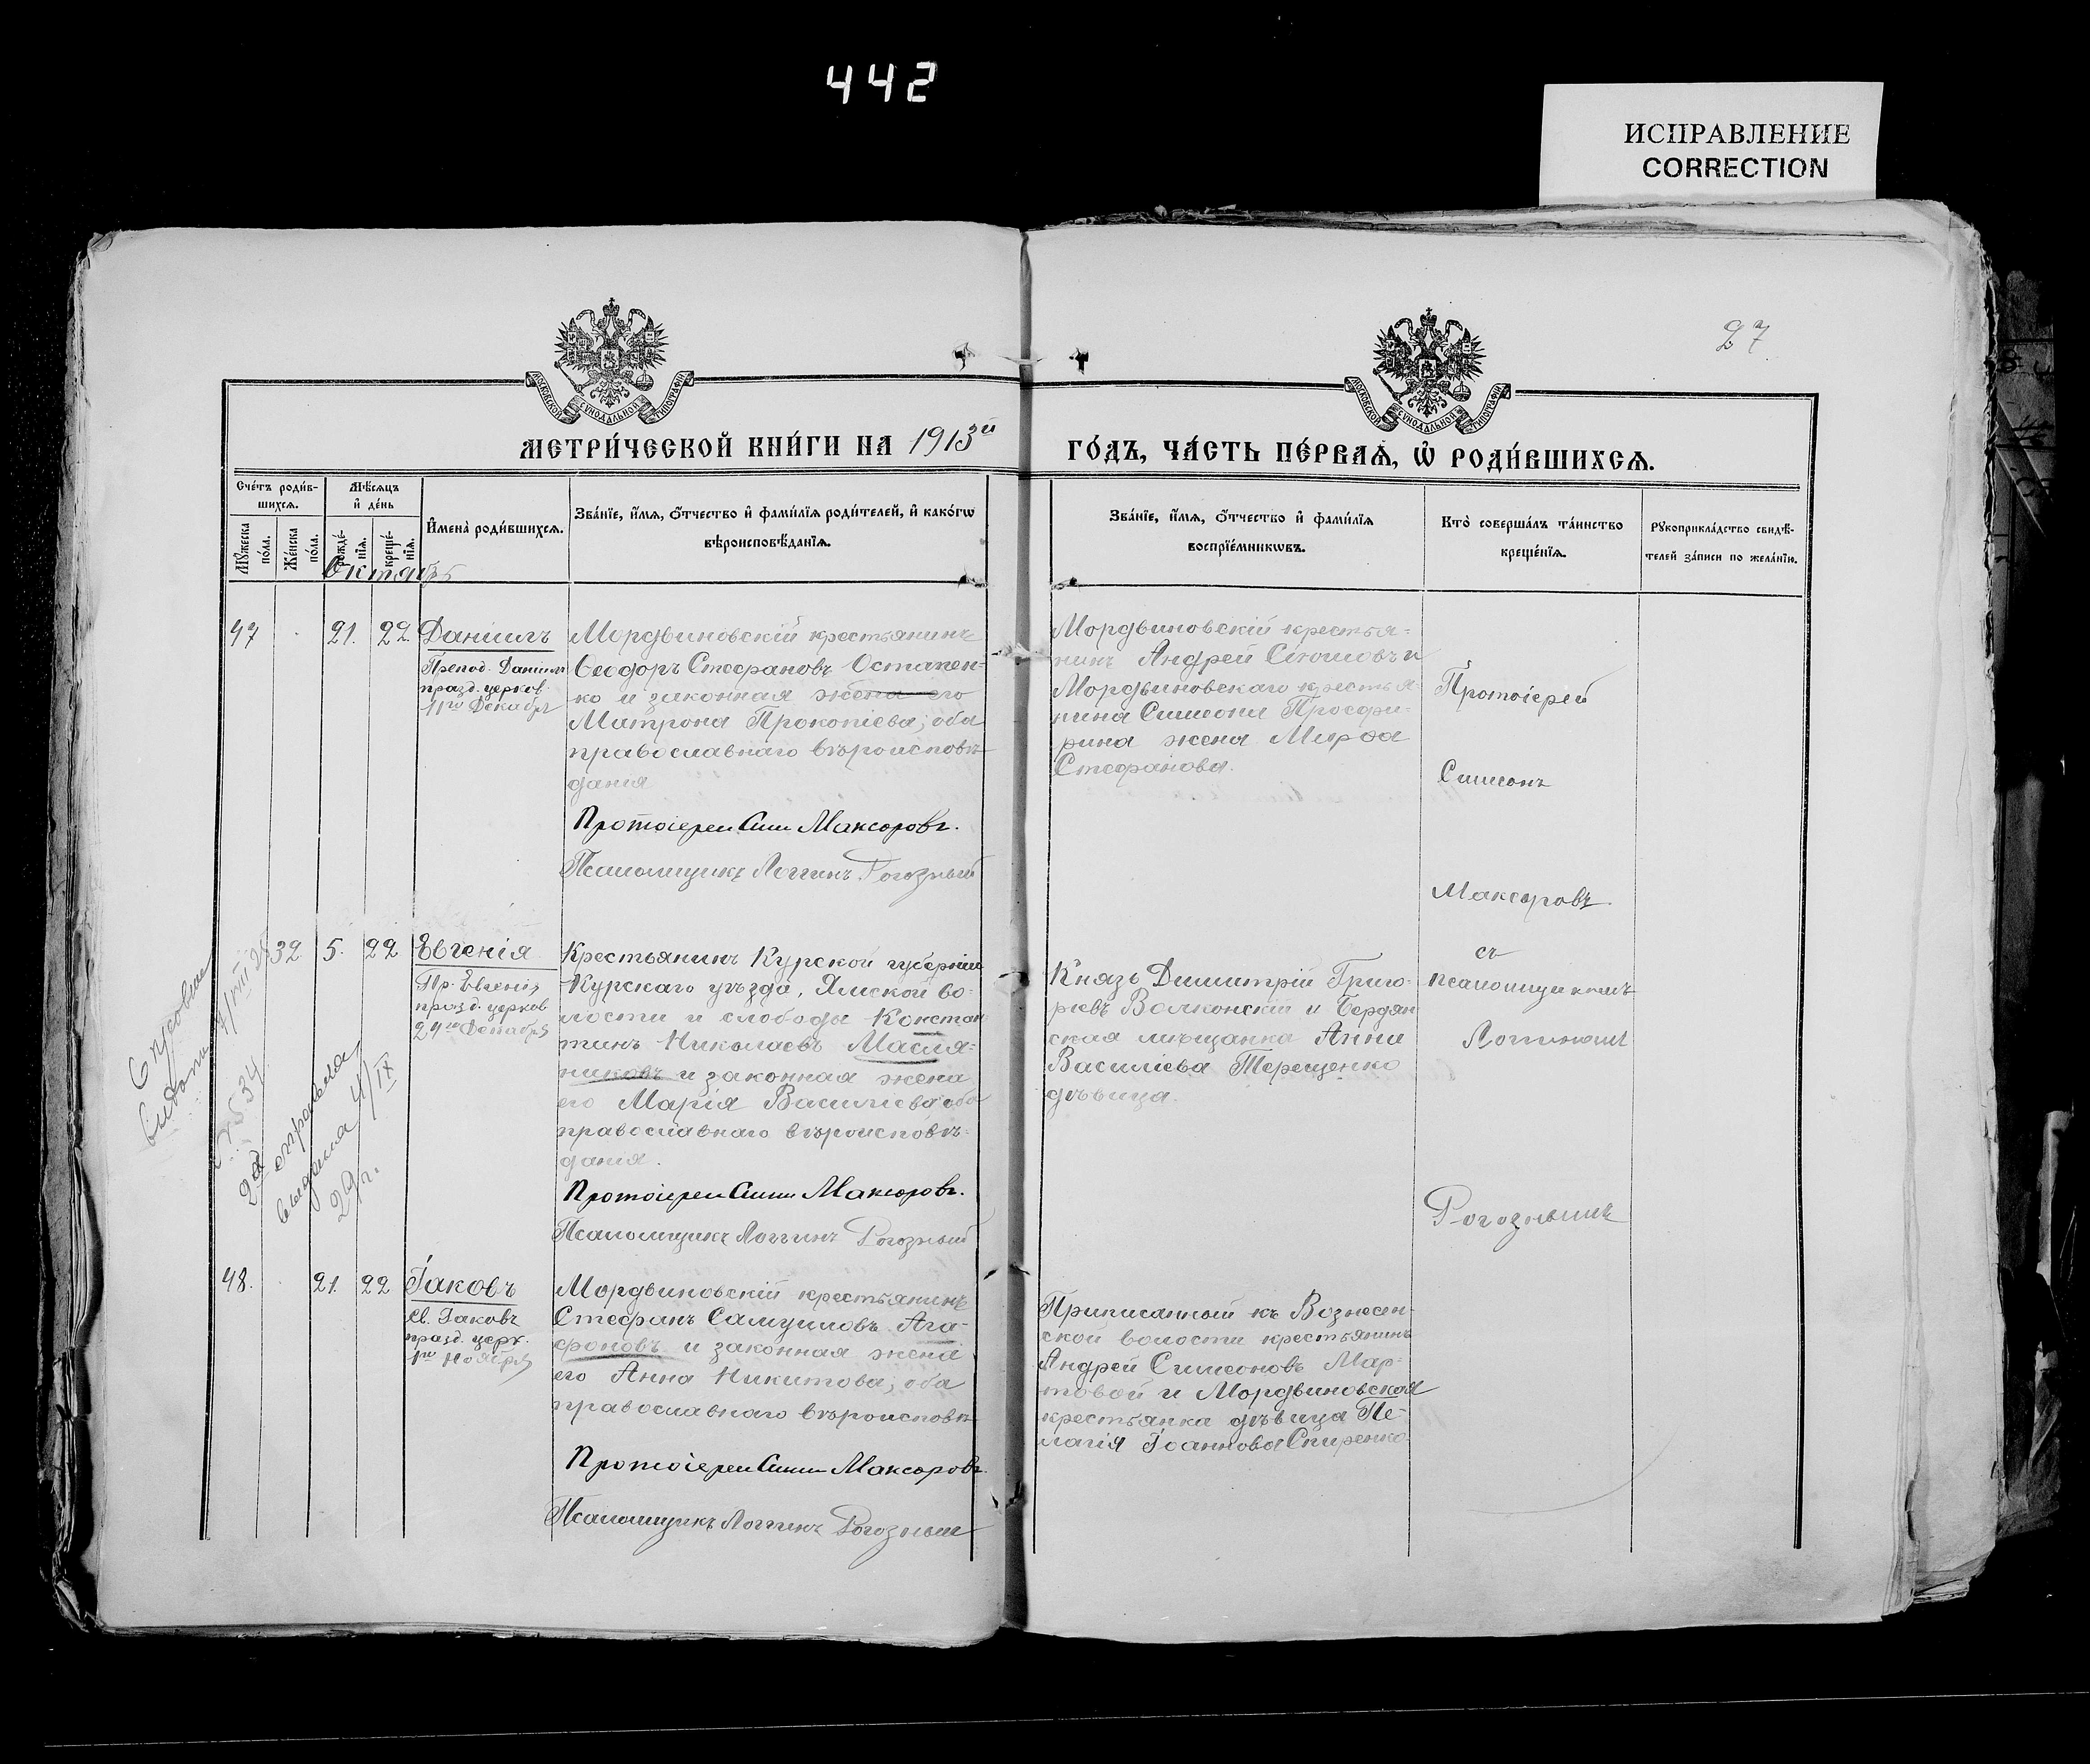 442
ИСПРАВЛЕНИЕ
CORRECTION
27
МОСКОВСКОЙ СѴНОДАЛЬНОЙ ТИПОГРАФІИ
МОСКОВСКОЙ СѴНОДАЛЬНОЙ ТИПОГРАФІИ
МЕТРИ́ЧЕСКОЙ КНИ́ГИ НА 1913й
ГО́ДЪ, ЧА́СТЬ ПЕ́РВАѦ, Ѡ҆ РОДИ́ВШИХСѦ.
Сче́тъ роди́в-
шихсѧ.
Мꙋ́жеска
по́ла.
Же́нска
по́ла.
Мѣ́сѧцъ
и҆ де́нь
рожде́-
нїѧ.
креще́-
нїѧ.
И҆мена̀ роди́вшихсѧ.
Зва́нїе, и҆́мѧ, ѻ҆́тчество и҆ фами́лїѧ роди́телей, и҆ како́гѡ
вѣроисповѣ́данїѧ.
Зва́нїе, и҆́мѧ, ѻ҆́тчество и҆ фами́лїѧ
воспрїе́мникѡвъ.
Кто̀ соверша́лъ та́инство
креще́нїѧ.
Рꙋкоприкла́дство свидѣ́-
телей за́писи по жела́нїю.
Октябрь
47
21. 22.
Даніилъ
Препод. Даніилъ
празд. церков.
11го Декабр
Мордвиновскій крестьянинъ
Ѳеодоръ Стефановъ Остапен-
ко и законная жена его
Матрона Прокопіева; оба
православнаго вѣроисповѣ-
данія
Протоіерей Сим Максоровъ.
Псаломщикъ Логгинъ Рогозный
Мордвиновскій крестья-
нинъ Андрей и
Мордвиновскаго крестья-
нина Симеона
жена Марѳа
Стефанова.
Протоіерей
Симеонъ
Максоровъ.
съ
псаломщикомъ
Логгиномъ
Рогознымъ
32 5. 22
Евгенія
Пр. Евгенія
празд. церков
24го Декабря
Крестьянинъ Курской губерніи
Курскаго уѣзда, Ямской во-
лости и слободы Констан-
тинъ Николаевъ Масля-
никовъ и законная жена
его Марія Васильева оба
православнаго вѣроисповѣ-
данія.
Протоіерей Сим Максоровъ.
Псаломщикъ Логгинъ Рогозный
Князь Димитрій Григо-
рьевъ Волконскій и Бердян
ская мѣщанка Анна
Василіева Терещенко
дѣвица.
№ 34
2я
выдана 4/IX
29г.
48. 21. 22
Іаковъ
Св. Іаковъ
празд. церк.
1го Ноября
Мордвиновскій крестьянинъ
Стефанъ Самуиловъ Ага-
фоновъ и законная жена
его Анна Никитова; оба
православнаго вѣроисповѣ-
Протоіерей Сим Максоровъ.
Псаломщикъ Логгинъ Рогозный
Приписанный къ Вознесен-
ской волости крестьянинъ
Андрей Симеоновъ Мар-
товой и Мордвиновская
крестьянка дѣвица Пе-
лагія Іоаннова Спиренко